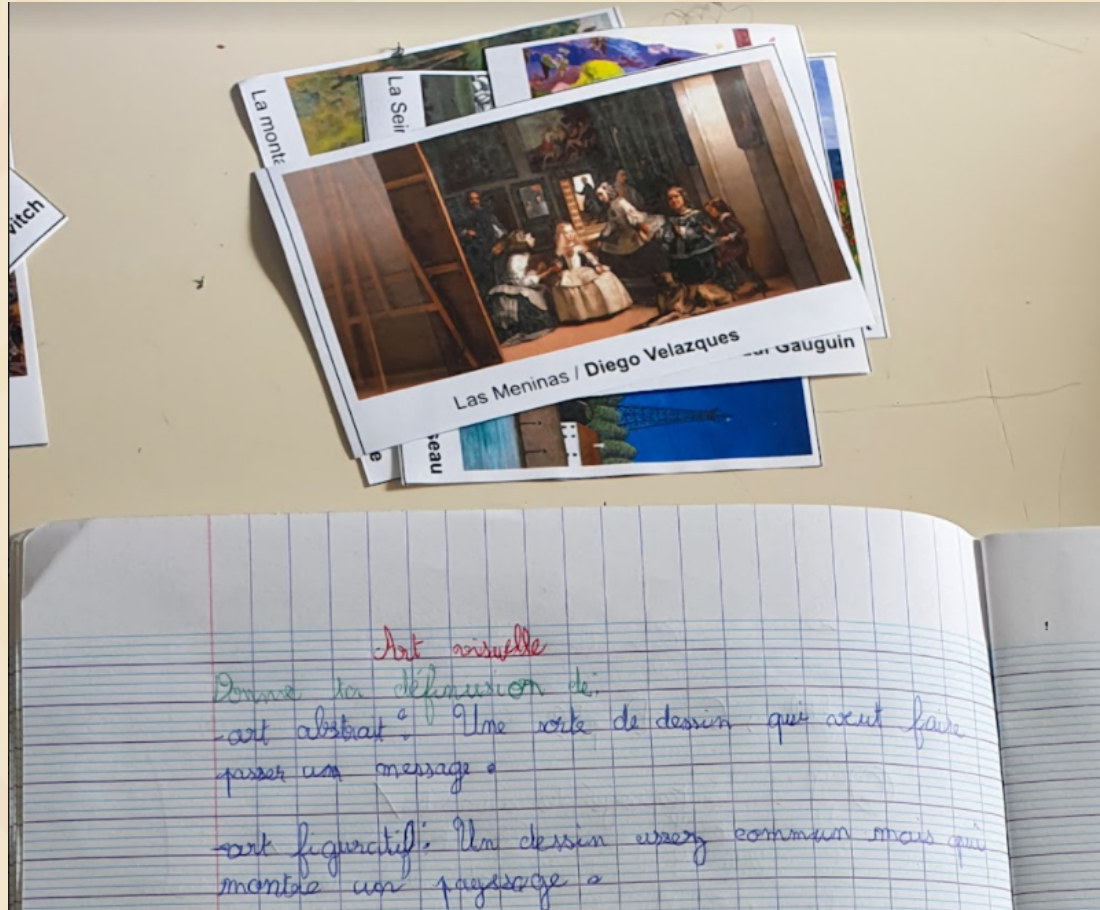 La monta
La Sei
vitch
Las Meninas / Diego Velazques
Gauguin
eau
e
Art visuelle
Donne ta définusion de:
-art abstrait : Une sorte de dessin qui veut faire
passer un message.
-art figuratif : Un dessin assez commun mais qui
montre un payssage.